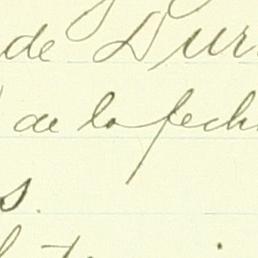 de Dur
de la fech
s.